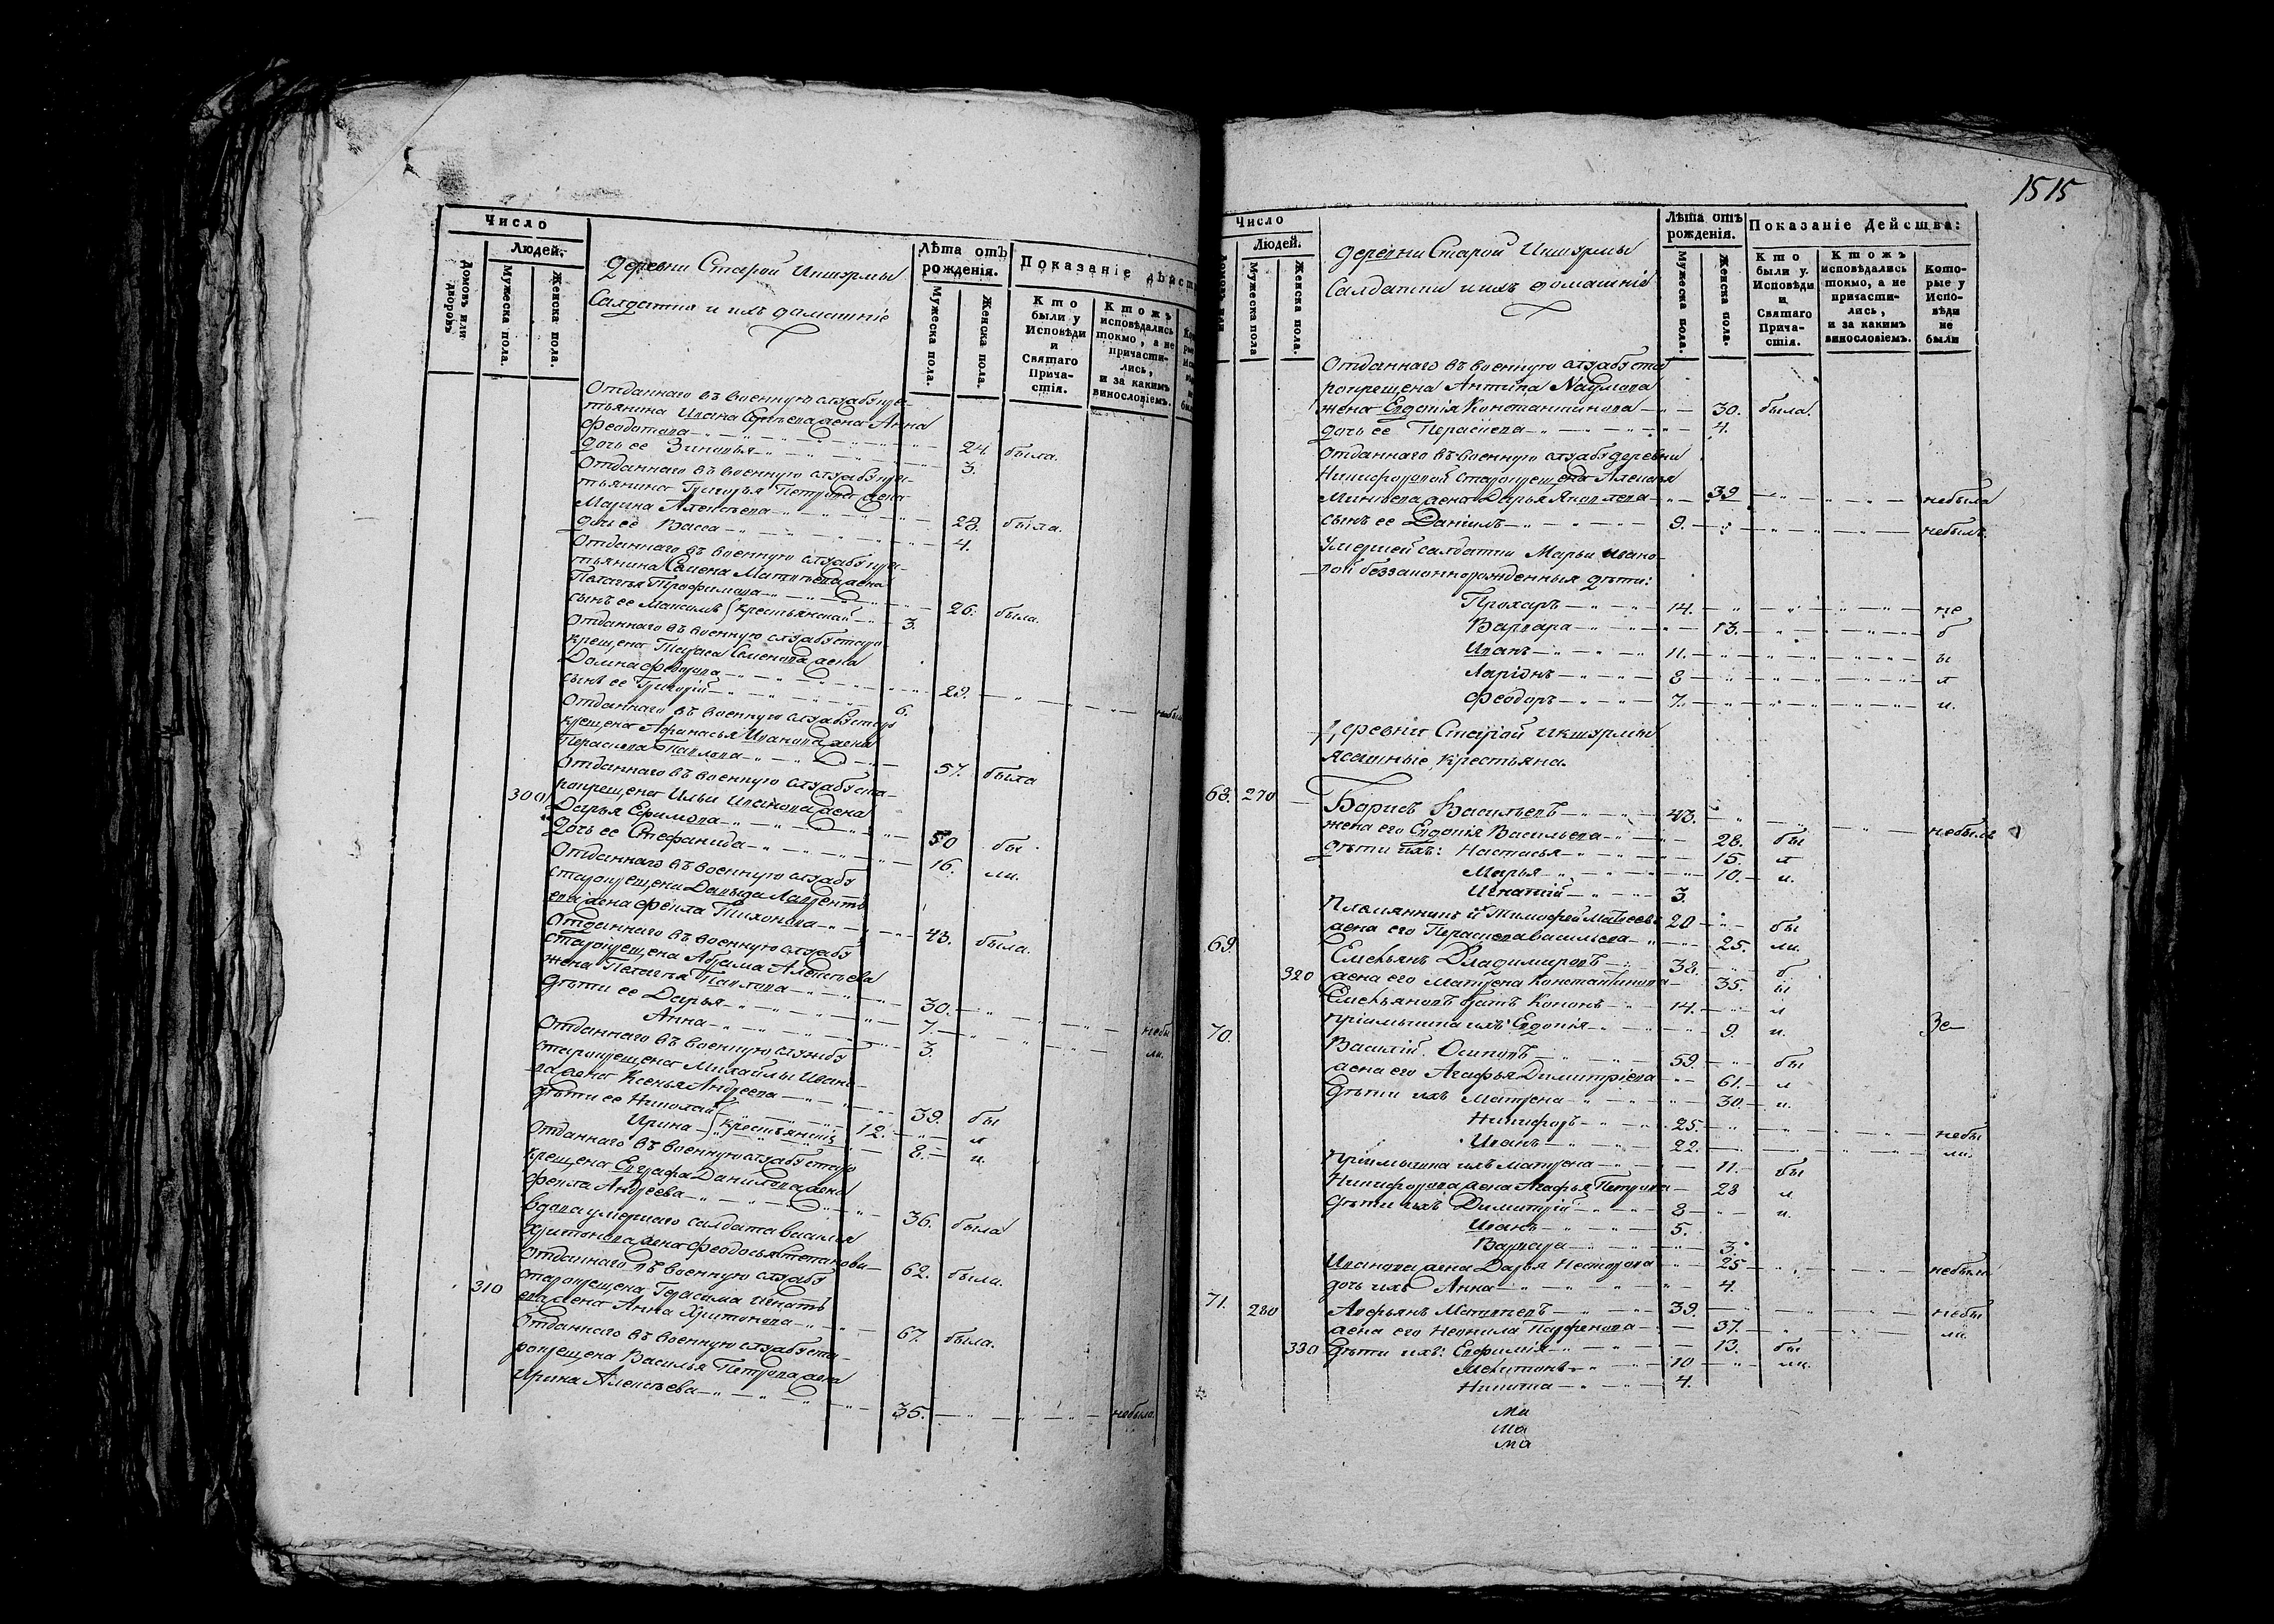 Число
Людей.
Домовъ или дворовъ
Мужеска пола.
Женска пола.
деревни Старой Икшурмы
Салдатки и ихъ домашніе
Лѣта отъ рожденія.
Мужеска пола.
Женска пола.
Показаніе дѣйст
Кто были у Исповѣди и Святаго Прича- стія.
Ктожъ исповѣдались токмо, а не причасти- лись, и за какимъ винословіемъ.
Отданнаго въ военную службу кре-
стьянина Ивана Сергѣева жена Анна
Феодотова 24. была.
дочь ее Зиновья 3.
Отданнаго въ военную службу кре-
стьянина Григорья Петрова жена
Марина Алексѣева 28. была.
дочь ее Васса 4.
Отданнаго въ военную службу кре-
стьянина Семена Матвѣева жена
Пелагья Трофимова 26. была.
сынъ ее Максимъ крестьянской 3.
Отданнаго въ военную службу старо
крещена Тараса Семенова жена
Домна Федорова 29. небыла
сынъ ее Григорій 6.
Отданнаго въ военную службу старо
крещена Афанасья Иванова жена
Пераскева Павлова 57. была
Отданнаго въ военную службу ста-
300 рокрещена Ильи Иванова жена
Дарья Ефимова 50 бы
дочь ее Стефанида 16. ли.
Отданнаго въ военную службу
старокрещена Давыда Лаврентъ
ева жена Фекла Тихонова 43. была.
Отданнаго въ военную службу
старокрещена Абрама Алексѣева
жена Пелагья Павлова 30. небы
дѣти ее Дарья 7. ли.
Анна 3.
Отданнаго въ военную службу
старокрещена Михайлы Ивано-
ва жена Ксенья Андреева 39. бы
дѣти ее Николай крестьянскіе 12. л
Ирина 8. и.
Отданнаго въ военную службу старо
крещена Евграфа Данилова жена
Фекла Андреева 36. была
вдова умершаго салдата Василья
Харитонова жена Феодосья Степанова 62. была.
Отданнаго въ военную службу
310 старокрещена Герасима Игнать
ева жена Анна Харитонова 67. была.
Отданнаго въ военную службу ста-
рокрещена Василья Петрова жена
Ирина Алексѣева 35. небыла.
1515
Число
Людей.
Домовъ или
Мужеска пола
Женска пола.
деревни Старой Икшурмы
Салдатки и ихъ домашніе
Лѣта отъ рожденія.
Мужеска пола.
Женска пола.
Показаніе Дейсшва:
Кто были у. Исповѣди и Святаго Прича- стія.
Ктожъ исповѣдались токмо, а не причасти- лись, и за какимъ винословіемъ.
Кото- рые у Испо- вѣди не были
Отданнаго въ военную службу ста
рокрещена Антипа Наумова
жена Евдокія Константинова 30. была.
дочь ее Пераскева 4.
Отданнаго въ военную службу деревни
Никифоровой старокрещена Алексѣя
Минѣева жена Дарья Яковлева 39 небыла
сынъ ее Даніилъ 9. небылъ.
Умершей салдатки Марьи Ивано-
вой беззаконнорожденныя дѣти:
Прохаръ 14. не
Варвара 13. б
Иванъ 11. ы
Ларіонъ 8 л
Феодоръ 7. и.
Деревни Старой Икшурмы
Ясашные крестьяна.
68. 270 Борисъ Васильевъ 43. небылъ
жена его Евдокія Васильева 28. бы
дѣти ихъ: Настасья 15. л
Марья 10. и.
Игнатій 3.
Племянникъ ихъ Тимофей Матвеевъ 20 бы
жена его Пераскева Васильева 25. ли.
69. Емельянъ Владимировъ 38. б
320 жена его Матрена Константинова 35. ы
Емельяновъ братъ Кононъ 14. л
пріимышка ихъ Евдокія 9. и.
За-
70. Василій Осиповъ 59. бы
жена его Агафья Димитріева 61. л
дѣти ихъ Матрена 30. и.
Никифоръ 25. небы
Иванъ 22. ли.
пріимышка ихъ Матрена 11. бы
Никифорова жена Агафья Петрова 28 л
дѣти ихъ Димитрій 8 и.
Иванъ 5.
Варвара 3.
Иванова жена Дарья Нестерова 25 небыла
дочь ихъ Анна 4.
71. 280 Аверьянъ Матвеевъ 39. небы
жена его Неонила Парфенова 37. ли.
330 дѣти ихъ: Евфимія 13. бы
Мелитонъ 10 ли.
Никита 4.
Ма
ша
ма